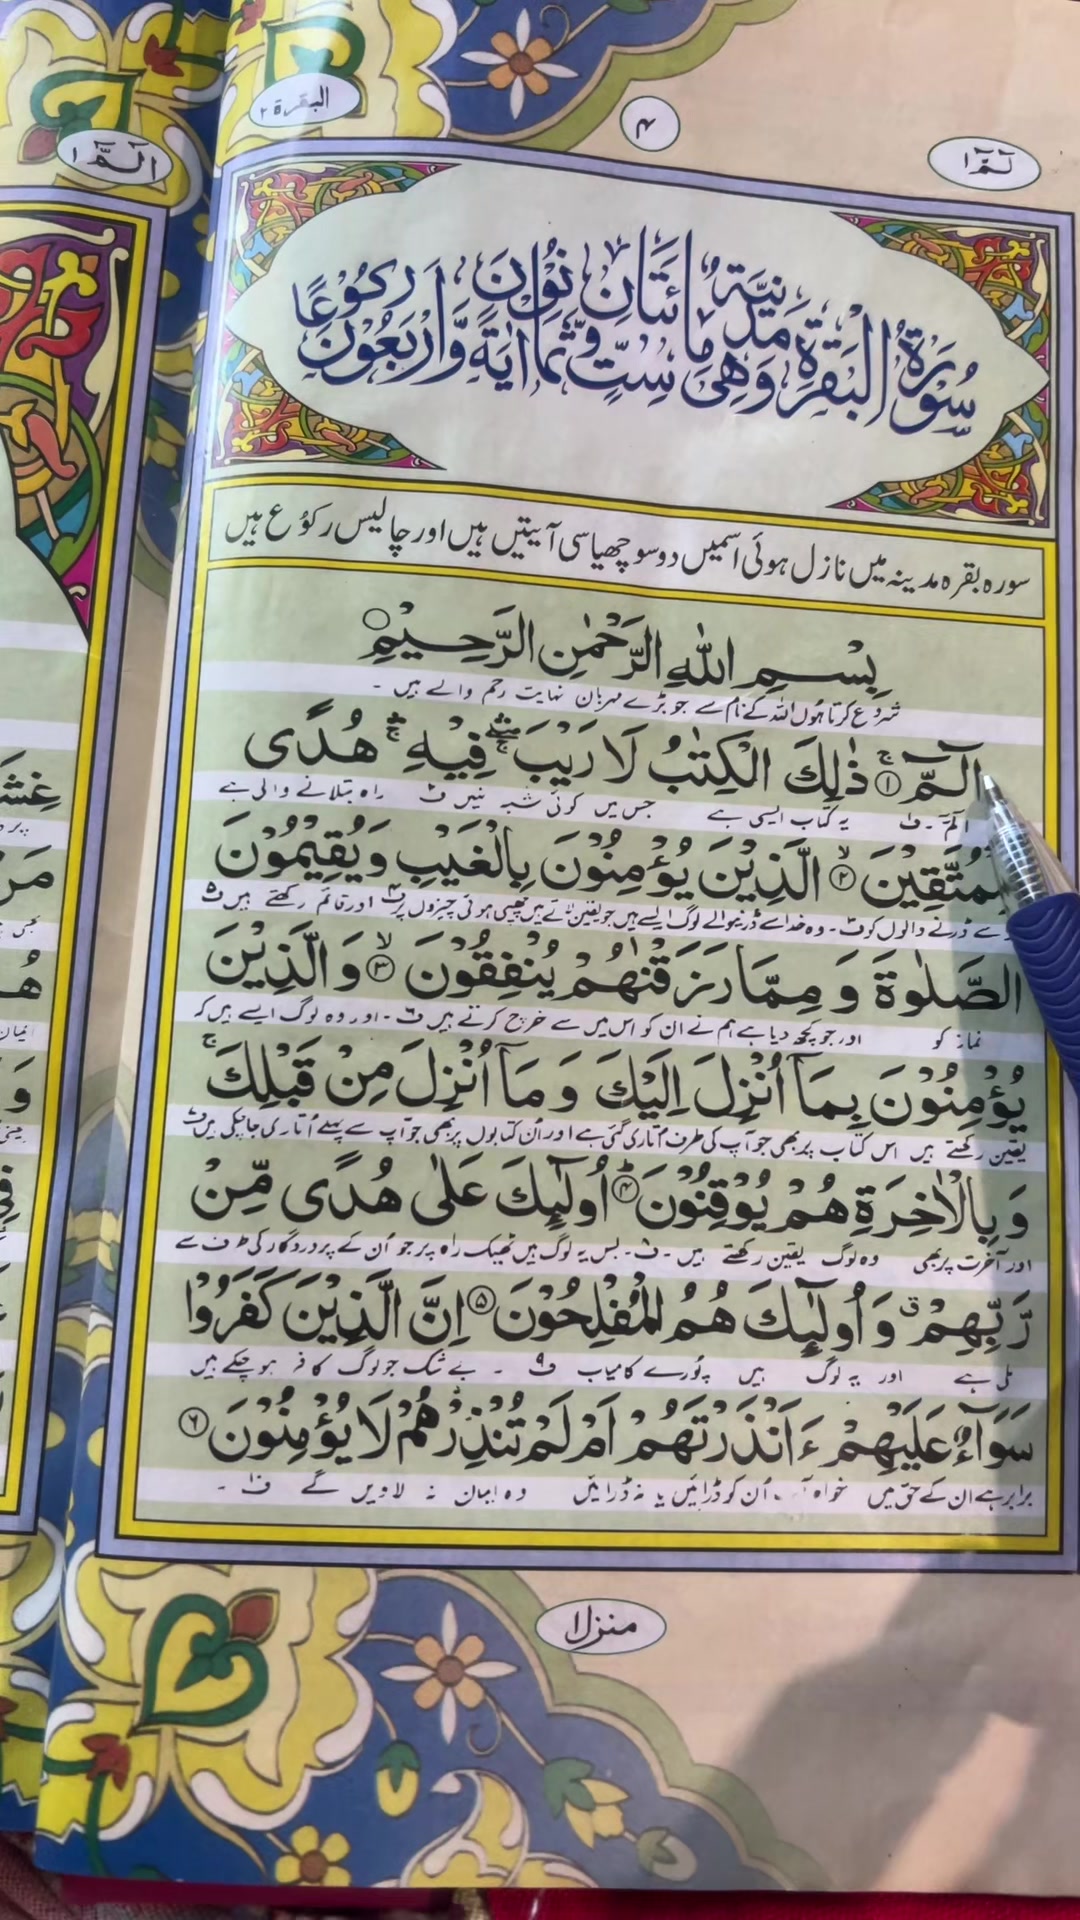 البقرة ٢
۴
الٓمّٓ ١
سُوْرَةُ الْبَقَرَةِ مَدَنِيَّةٌ وَّهِىَ مِائَتَانِ وَسِتٌّ وَّثَمَانُوْنَ اٰيَةً وَّاَرْبَعُوْنَ رُكُوْعًا
سورہ بقرہ مدینہ میں نازل ہوئی اسمیں دوسو چھیاسی آیتیں ہیں اور چالیس رکوع ہیں
بِسْمِ اللّٰهِ الرَّحْمٰنِ الرَّحِيْمِ ○
شروع کرتا ہوں اللہ کے نام سے جو بڑے مہربان نہایت رحم والے ہیں ۔
الٓمّٓ ۚ‏ ﴿١﴾ ذٰلِكَ الْكِتٰبُ لَا رَيْبَ ۛۚ فِيْهِ ۛۚ هُدًى
الٓمٓ ۔ ف یہ کتاب ایسی ہے جس میں کوئی شبہ نہیں ف راہ بتلانے والی ہے
لِّلْمُتَّقِيْنَ ۙ‏ ﴿٢﴾ الَّذِيْنَ يُؤْمِنُوْنَ بِالْغَيْبِ وَيُقِيْمُوْنَ
سے ڈرنے والوں کو ف ۔ وہ خدا سے ڈرنیوالے لوگ ایسے ہیں جو یقین لاتے ہیں چھپی ہوئی چیزوں پر ف اور قائم رکھتے ہیں ف
الصَّلٰوةَ وَ مِمَّا رَزَقْنٰهُمْ يُنْفِقُوْنَ ۙ‏ ﴿٣﴾ وَ الَّذِيْنَ
نماز کو اور جو کچھ دیا ہے ہم نے ان کو اس میں سے خرچ کرتے ہیں ف ۔ اور وہ لوگ ایسے ہیں کہ
يُؤْمِنُوْنَ بِمَاۤ اُنْزِلَ اِلَيْكَ وَ مَاۤ اُنْزِلَ مِنْ قَبْلِكَ ۚ
یقین رکھتے ہیں اس کتاب پر بھی جو آپ کی طرف اُتاری گئی ہے اور اُن کتابوں پر بھی جو آپ سے پہلے اُتاری جا چکی ہیں ف
وَ بِالْاٰخِرَةِ هُمْ يُوْقِنُوْنَ ؕ‏ ﴿۴﴾ اُولٰٓئِكَ عَلٰى هُدًى مِّنْ
اور آخرت پر بھی وہ لوگ یقین رکھتے ہیں ۔ ف ۔ بس یہ لوگ ہیں ٹھیک راہ پر جو اُن کے پروردگار کی طرف سے
رَّبِّهِمْ ۗ وَ اُولٰٓئِكَ هُمُ الْمُفْلِحُوْنَ ﴿۵﴾ اِنَّ الَّذِيْنَ كَفَرُوْا
ملی ہے اور یہ لوگ ہیں پُورے کامیاب ف۹ ۔ بے شک جو لوگ کافر ہو چکے ہیں
سَوَآءٌ عَلَيْهِمْ ءَاَنْذَرْتَهُمْ اَمْ لَمْ تُنْذِرْهُمْ لَا يُؤْمِنُوْنَ ﴿٦﴾
برابر ہے ان کے حق میں خواہ آپ اُن کو ڈرائیں یا نہ ڈرائیں وہ ایمان نہ لاویں گے ف ۔
منزل ١
الٓمّٓ ١